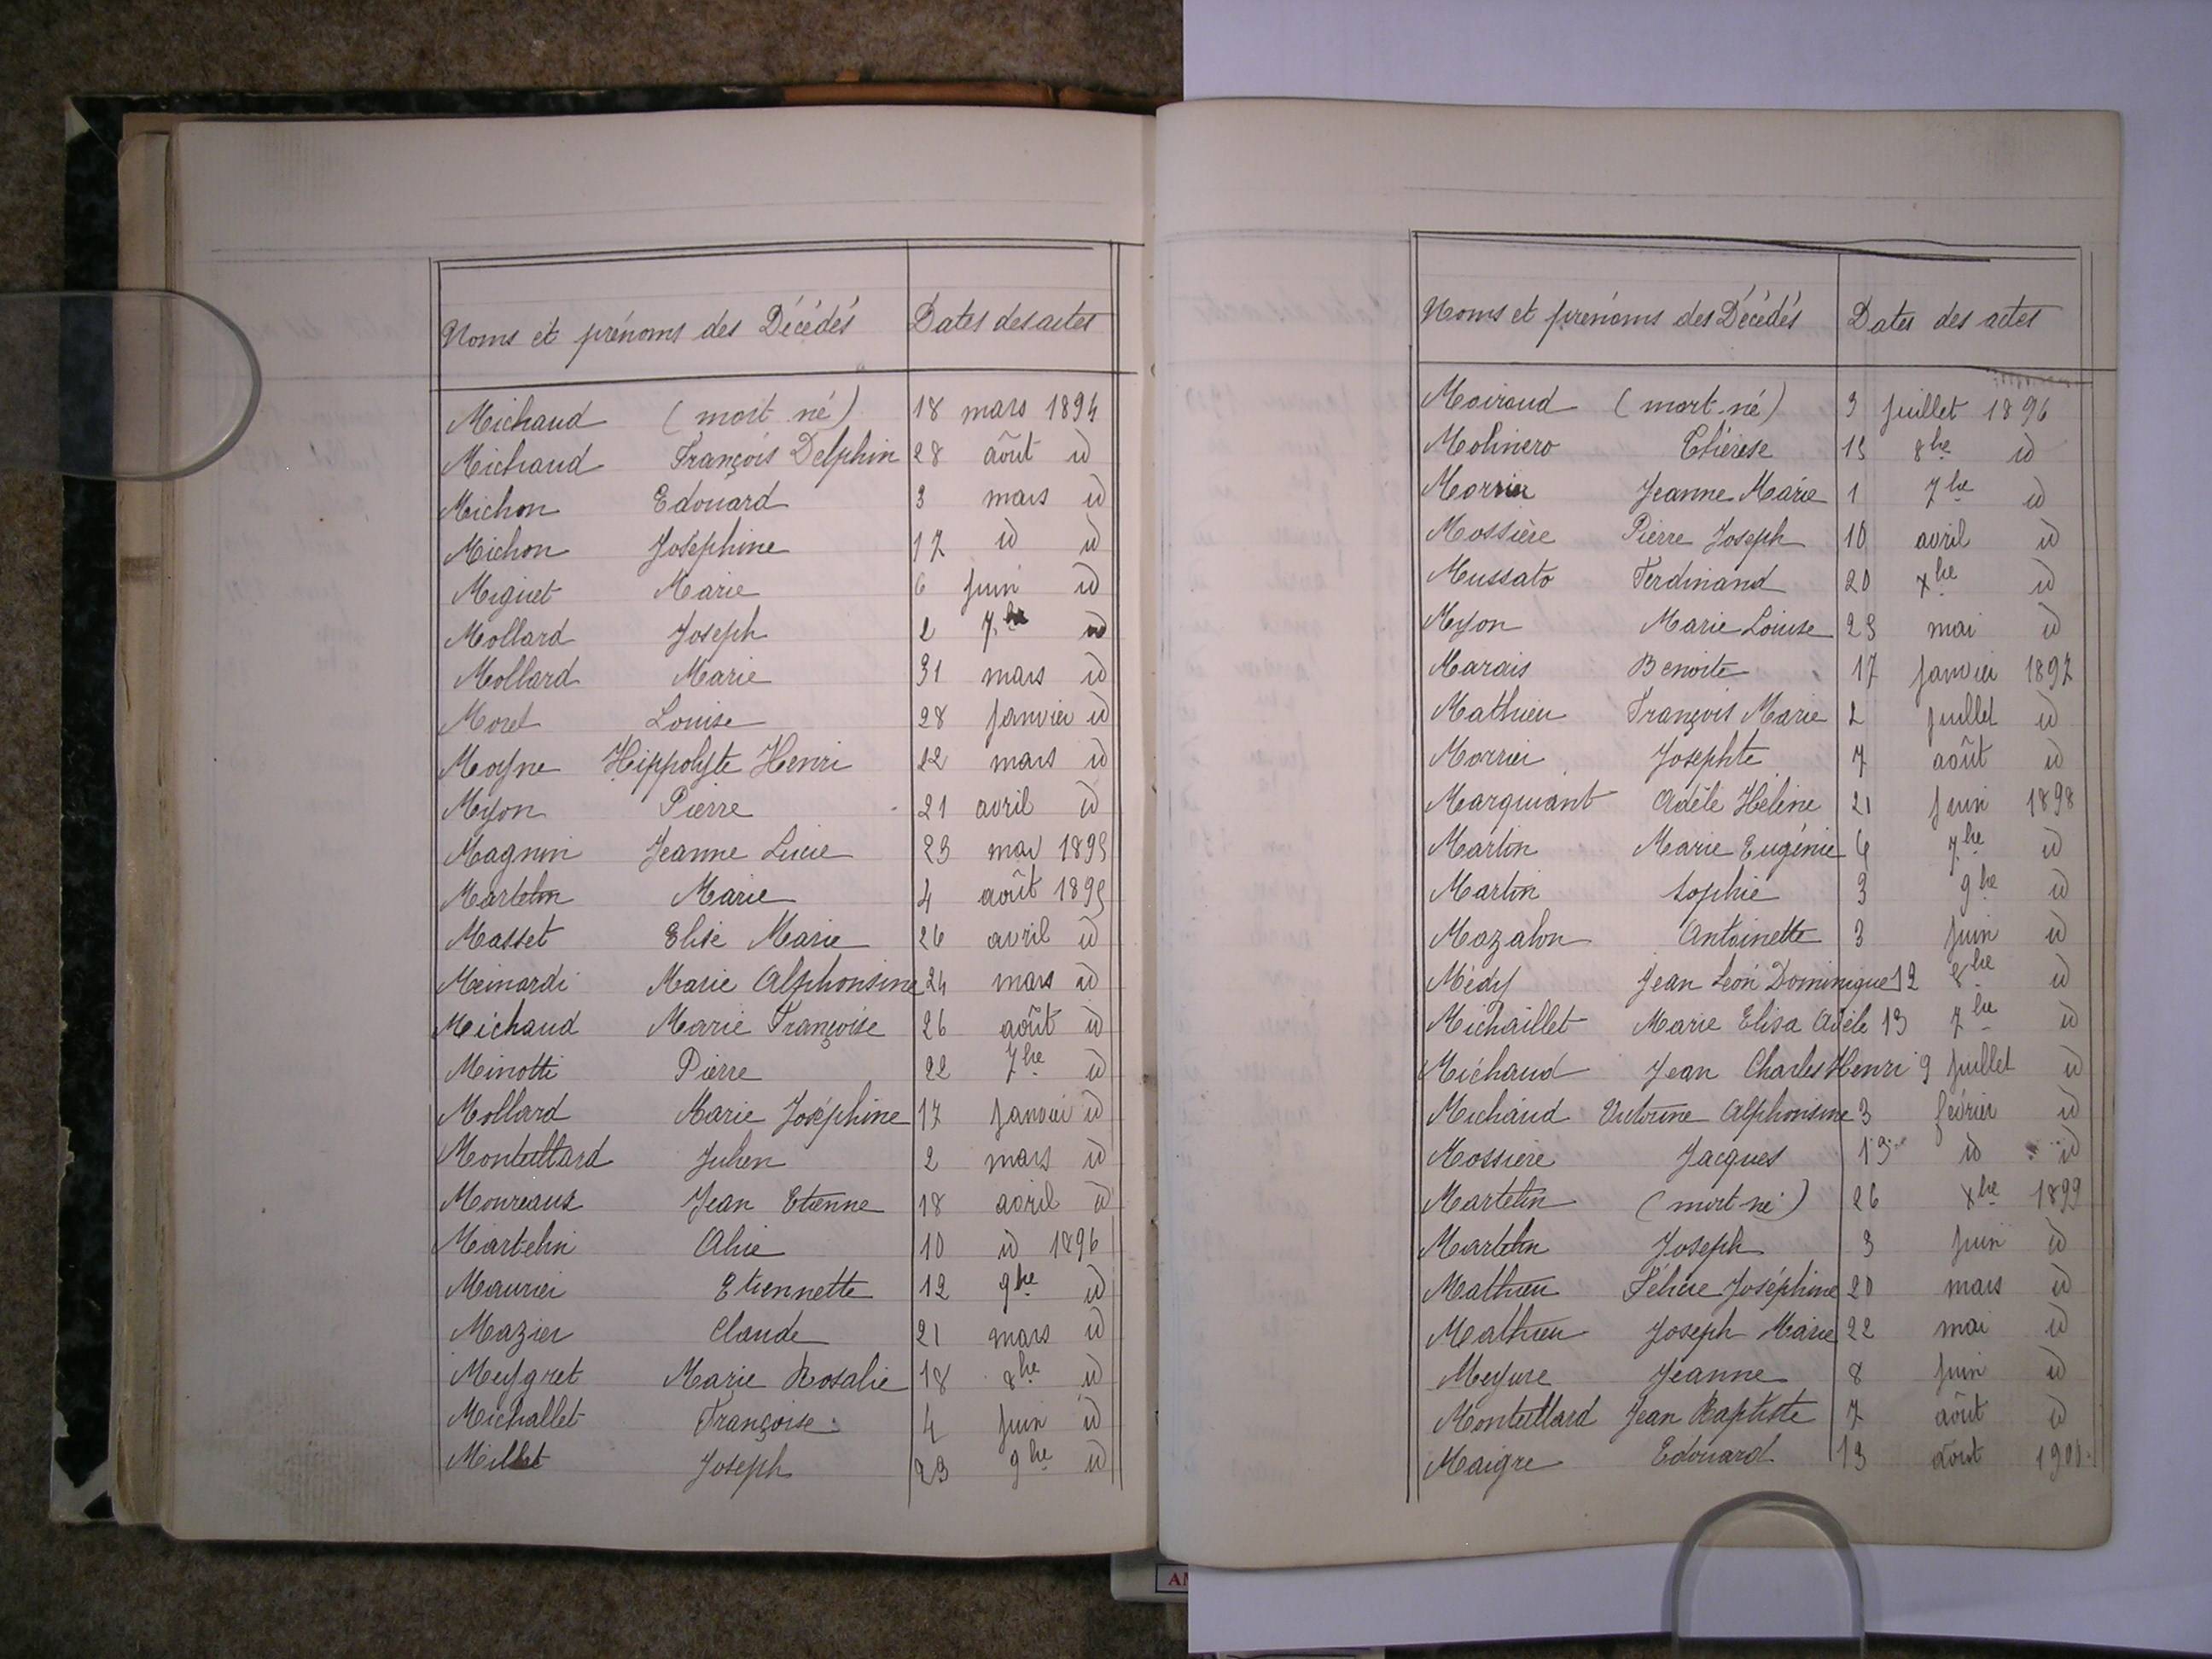 Noms et prénoms des Décédés Dates des actes
Michaud (mort né) 18 mars 1894
Michaud François Delphin 28 août id
Michon Edouard 3 mars id
Michon Joséphine 17 id id
Miguet Marie 6 juin id
Mollard Joseph 2 7bre id
Mollard Marie 31 mars id
Moret Louise 28 janvier id
Moyne Hippolyte Henri 22 mars id
Myon Pierre 21 avril id
Magnin Jeanne Lucie 23 mai 1895
Martelin Marie 4 août 1895
Masset Elise Marie 26 avril id
Meinardi Marie Alphonsine 24 mars id
Michaud Marie Françoise 26 août id
Minotti Pierre 22 7bre id
Mollard Marie Joséphine 17 janvier id
Monteillard Julien 2 mars id
Moureaux Jean Etienne 18 avril id
Martelin Alice 10 id 1896
Maurier Etiennette 12 9bre id
Mazier Claude 21 mars id
Meygret Marie Rosalie 18 8bre id
Michallet Françoise 4 juin id
Millet Joseph 23 9bre id
Noms et prénoms des Décédés Dates des actes
Moiroud (mort-né) 3 juillet 1896
Molinero Thérèse 15 8bre id
Morrier Jeanne Marie 1 7bre id
Mossière Pierre Joseph 10 avril id
Mussato Ferdinand 20 xbre id
Myon Marie Louise 23 mai id
Marais Benoite 17 janvier 1897
Mathieu François Marie 2 juillet id
Morrier Josephte 7 août id
Marquant Adèle Hélène 21 juin 1898
Martin Marie Eugénie 4 7bre id
Martin Sophie 3 9bre id
Mazalon Antoinette 3 juin id
Médy Jean Léon Dominique 12 8bre id
Michaillet Marie Elisa Adèle 13 7bre id
Michaud Jean Charles Henri 9 juillet id
Michaud Victorine Alphonsine 3 février id
Mossière Jacques 13 id id
Martelin (mort-né) 26 xbre 1899
Martelin Joseph 3 juin id
Mathieu Félicie Joséphine 20 mars id
Mathieu Joseph Marie 22 mai id
Meyure Jeanne 8 juin id
Monteillard Jean Baptiste 7 août id
Maigre Edouard 13 août